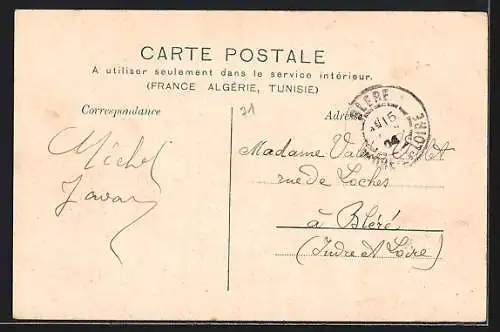 CARTE POSTALE
A utiliser seulement dans le service intérieur.
(FRANCE ALGÉRIE, TUNISIE)
Correspondance
21
Adresse
BLÉRÉ
15
04
Michel
Madame
rue de Loches
à Bléré
(Indre et Loire)